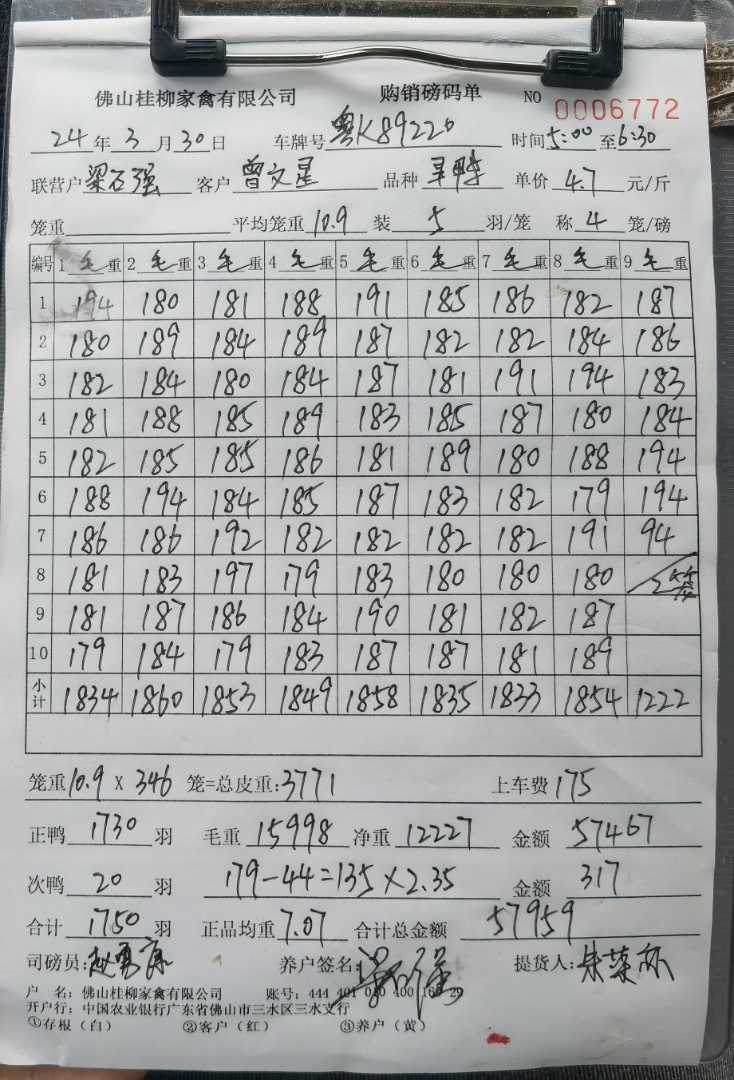 佛山桂柳家禽有限公司 购销磅码单 NO 0006772
24年3月30日 车牌号粤K89220 时间5:00至6:30
联营户梁石强 客户曾文星 品种旱鸭 单价4.7元/斤
笼重 平均笼重10.9 装5羽/笼 称4笼/磅
编号 1毛重 2毛重 3毛重 4毛重 5毛重 6毛重 7毛重 8毛重 9毛重
1 194 180 181 188 191 185 186 182 187
2 180 189 184 189 187 182 182 184 186
3 182 184 180 184 187 181 191 194 183
4 181 188 185 189 183 185 187 180 184
5 182 185 185 186 181 189 180 188 194
6 188 194 184 185 187 183 182 179 194
7 186 186 192 182 182 182 182 191 94
8 181 183 197 179 183 180 180 180 2
9 181 187 186 184 190 181 182 187
10 179 184 179 183 187 187 181 189
小计 1834 1860 1853 1849 1858 1835 1833 1854 1222
笼重10.9 X 346 笼=总皮重:3771 上车费175
正鸭1730羽 毛重15998 净重12227 金额57467
次鸭20羽 179-44=135×2.35 金额317
合计1750羽 正品均重7.07 合计总金额57959
司磅员: 养户签名: 提货人:
户 名:佛山桂柳家禽有限公司 账号:444 401 0
开户行:中国农业银行广东省佛山市三水区三水支行
①存根(白) ②客户(红) ③养户(黄)